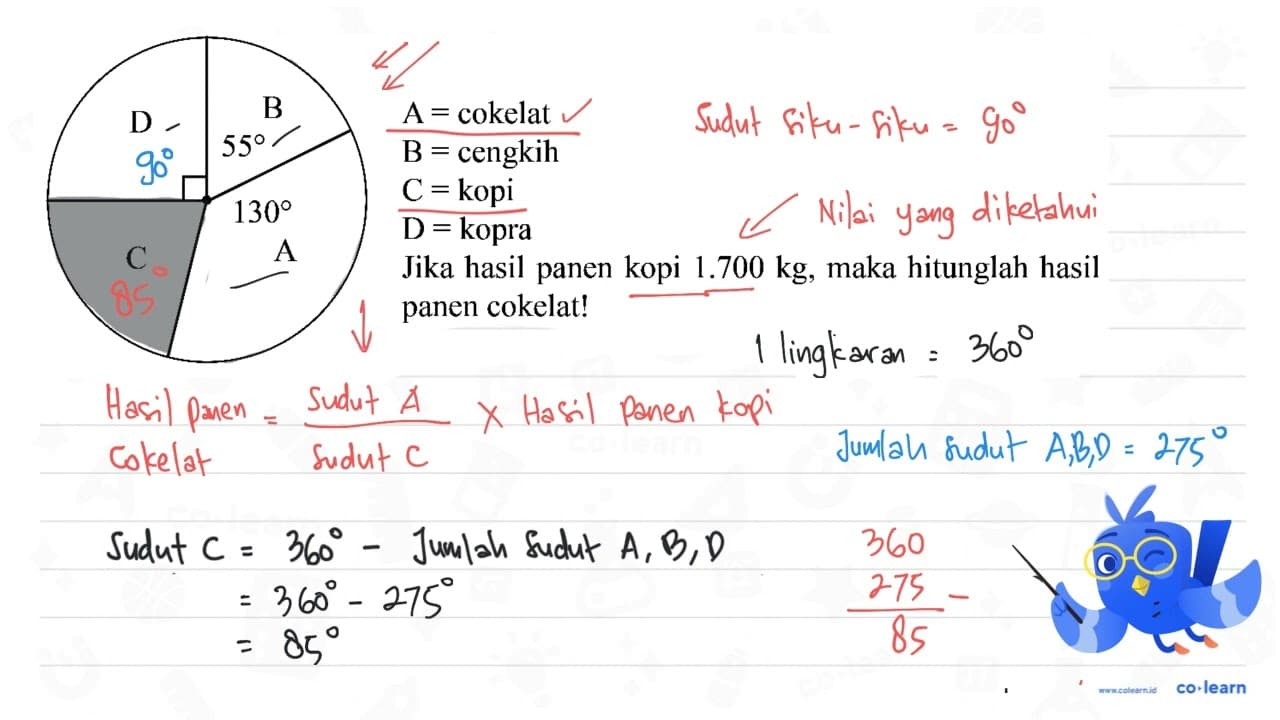 D
B
90°
55°
130°
C
A
85°
A = cokelat
B = cengkih
C = kopi
D = kopra
Jika hasil panen kopi 1.700 kg, maka hitunglah hasil
panen cokelat!
Sudut siku-siku = 90°
Nilai yang diketahui
1 lingkaran = 360°
Hasil panen cokelat = Sudut A / Sudut C × Hasil panen kopi
Jumlah sudut A,B,D = 275°
Sudut C = 360° - Jumlah Sudut A, B, D
= 360° - 275°
= 85°
360
275 -
85
www.colearn.id
co·learn